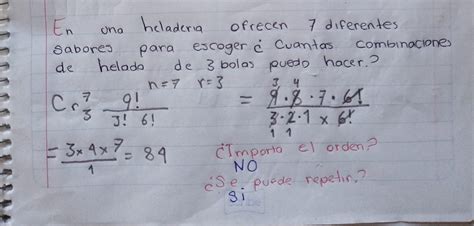 En una heladeria ofrecen 7 diferentes
sabores para escoger ¿ Cuantas combinaciones
de helado de 3 bolas puedo hacer?
n=7 r=3
Cr 7 3 9! / 3! 6! = 9·8·7·6! / 3·2·1 x 6! 3 4 1 1
= 3x4x7 / 1 = 84 ¿Importa el orden?
NO
¿Se puede repetir?
Si